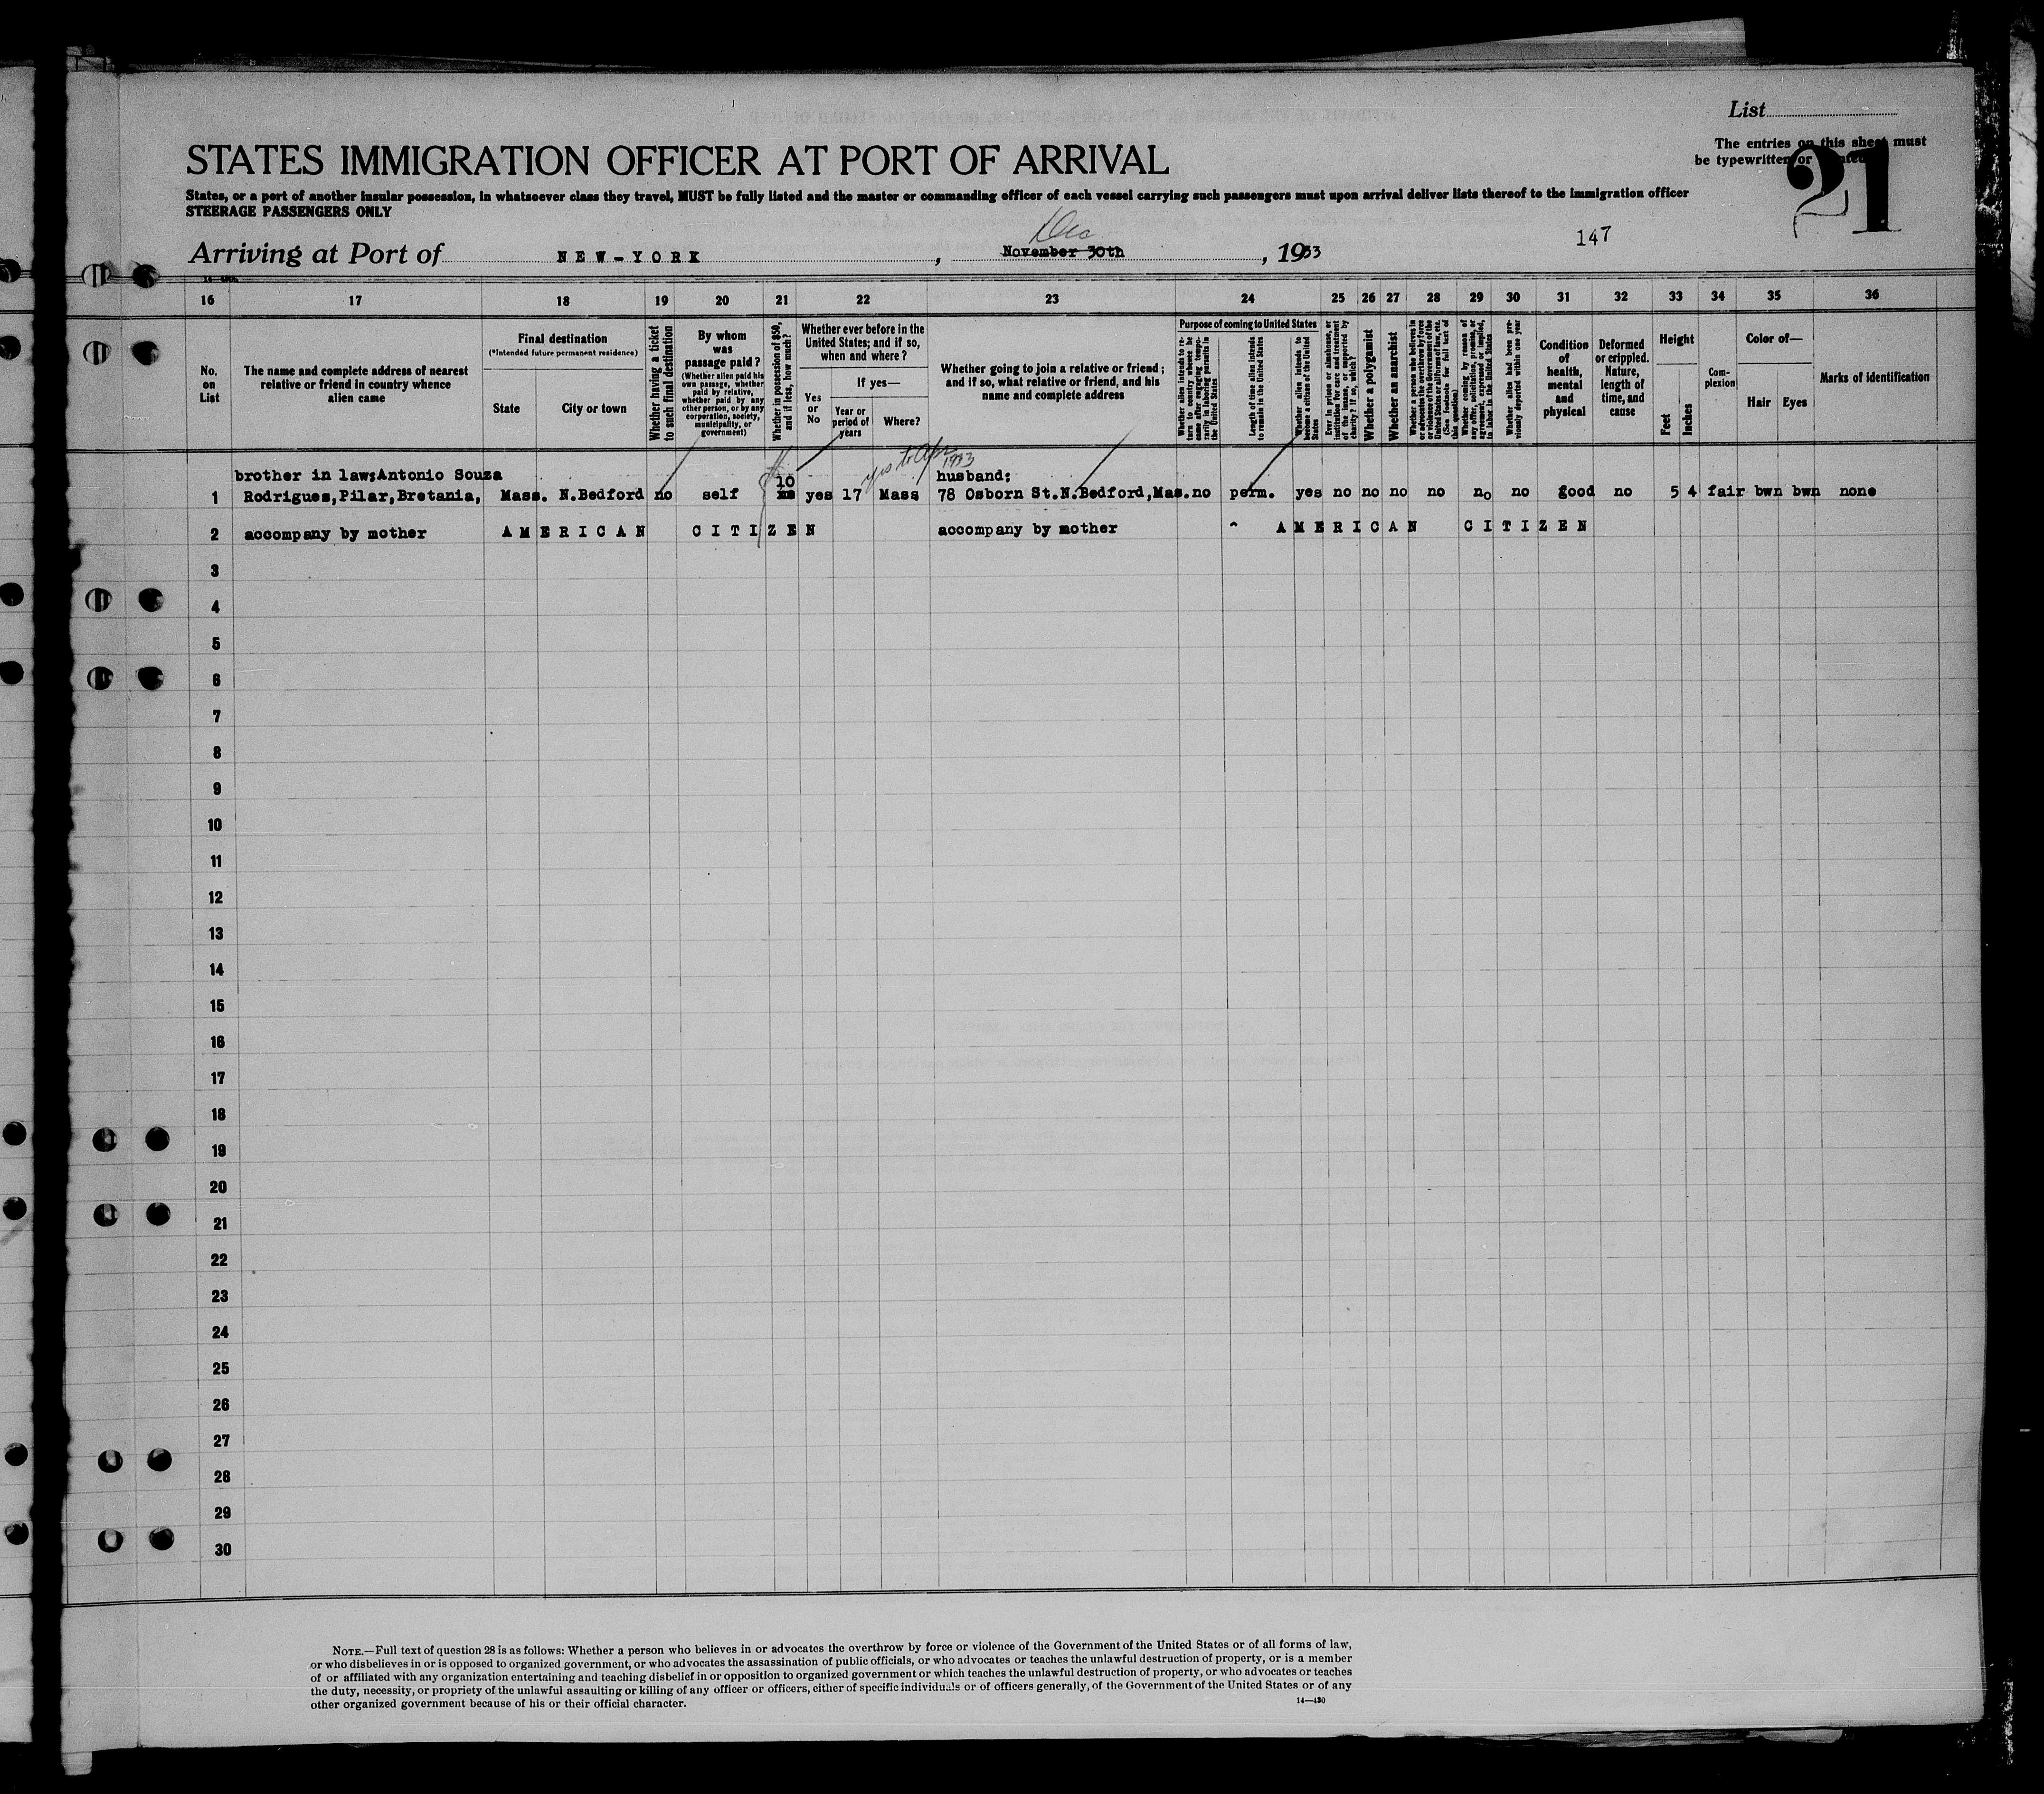 List
The entries on this sheet must
be typewritten or
21
STATES IMMIGRATION OFFICER AT PORT OF ARRIVAL
States, or a port of another insular possession, in whatsoever class they travel, MUST be fully listed and the master or commanding officer of each vessel carrying such passengers must upon arrival deliver lists thereof to the immigration officer
STEERAGE PASSENGERS ONLY
Dec
147
Arriving at Port of NEW-YORK, November 30th, 1933
16 17 18 19 20 21 22 23 24 25 26 27 28 29 30 31 32 33 34 35 36
No. on List
The name and complete address of nearest relative or friend in country whence alien came
Final destination
(*Intended future permanent residence)
State
City or town
Whether having a ticket to such final destination
By whom was passage paid?
(Whether alien paid his own passage, whether paid by relative, whether paid by any other person, or by any corporation, society, municipality, or government)
Whether in possession of $50, and if less, how much?
Whether ever before in the United States; and if so, when and where?
Yes or No
If yes—
Year or period of years
Where?
Whether going to join a relative or friend; and if so, what relative or friend, and his name and complete address
Purpose of coming to United States
Whether alien intends to return to country whence he came after engaging temporarily in laboring pursuits in the United States
Length of time alien intends to remain in the United States
Whether alien intends to become a citizen of the United States
Ever in prison or almshouse, or institution for care and treatment of the insane, or supported by charity? If so, which?
Whether a polygamist
Whether an anarchist
Whether a person who believes in or advocates the overthrow by force or violence of the Government of the United States or all forms of law, etc. (See footnote for full text of this question)
Whether coming by reason of any offer, solicitation, promise, or agreement, expressed or implied, to labor in the United States
Whether alien had been previously deported within one year
Condition of health, mental and physical
Deformed or crippled. Nature, length of time, and cause
Height
Feet
Inches
Complexion
Color of—
Hair
Eyes
Marks of identification
yrs to Apr 1933
brother in law;Antonio Souza 10 husband;
1 Rodrigues,Pilar,Bretania, Mass. N.Bedford no self yes 17 Mass 78 Osborn St.N.Bedford,Mas. no perm. yes no no no no no no good no 5 4 fair bwn bwn none
2 accompany by mother AMERICAN CITIZEN accompany by mother AMERICAN CITIZEN
3
4
5
6
7
8
9
10
11
12
13
14
15
16
17
18
19
20
21
22
23
24
25
26
27
28
29
30
NOTE.—Full text of question 28 is as follows: Whether a person who believes in or advocates the overthrow by force or violence of the Government of the United States or of all forms of law,
or who disbelieves in or is opposed to organized government, or who advocates the assassination of public officials, or who advocates or teaches the unlawful destruction of property, or is a member
of or affiliated with any organization entertaining and teaching disbelief in or opposition to organized government or which teaches the unlawful destruction of property, or who advocates or teaches
the duty, necessity, or propriety of the unlawful assaulting or killing of any officer or officers, either of specific individuals or of officers generally, of the Government of the United States or of any
other organized government because of his or their official character.
14—430